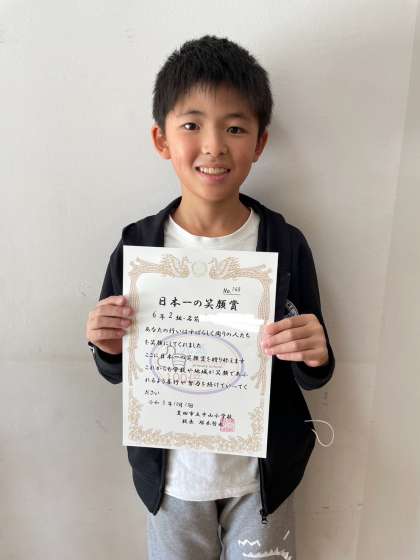 No. 168
日本一の笑顔賞
6年2組・名前
あなたの行いはすばらしく周りの人たち
を笑顔にしてくれました
ここに日本一の笑顔賞を贈り称えます
これからも学校や地域が笑顔であふ
れるよう善行や努力を続けていってく
ださい
豊田市立中山小学校
校長